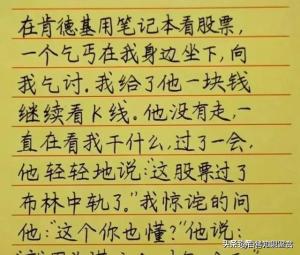 在肯德基用笔记本看股票,
一个乞丐在我身边坐下,向
我乞讨。我给了他一块钱
继续看K线。他没有走,一
直在看我干什么,过了一会,
他轻轻地说:“这股票过了
布林中轨了。”我惊诧的问
他:“这个你也懂?”他说: